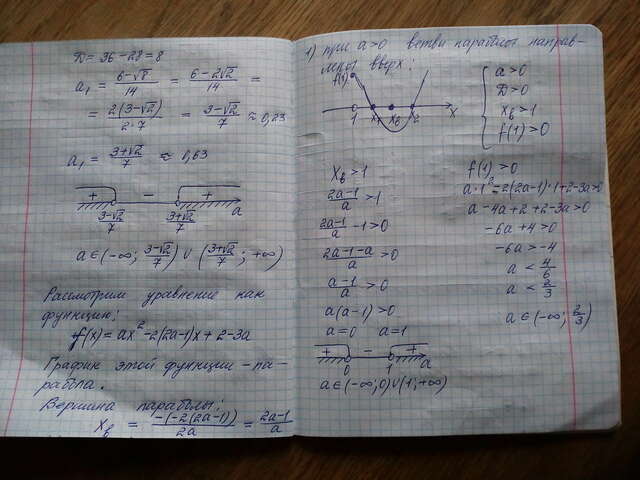 D = 36 - 28 = 8
a₁ = (6-√8)/14 = (6-2√2)/14 =
= 2(3-√2)/(2·7) = (3-√2)/7 ≈ 0,23
a₁ = (3+√2)/7 ≈ 0,63
+ - +
(3-√2)/7 (3+√2)/7 a
a ∈ (-∞; (3-√2)/7) ∪ ((3+√2)/7; +∞)
Рассмотрим уравнение как
функцию:
f(x) = ax² - 2(2a-1)x + 2 - 3a
График этой функции - па-
рабола.
Вершина параболы:
x_в = -(-2(2a-1))/2a = (2a-1)/a
1) при a>0 ветви параболы направ-
лены вверх:
f(1)
1 x₁ x_в x₂ x
a > 0
D > 0
x_в > 1
f(1) > 0
x_в > 1
(2a-1)/a > 1
(2a-1)/a - 1 > 0
(2a-1-a)/a > 0
(a-1)/a > 0
a(a-1) > 0
a=0 a=1
+ - +
0 1 a
a ∈ (-∞; 0) ∪ (1; +∞)
f(1) > 0
a·1² - 2(2a-1)·1 + 2 - 3a > 0
a - 4a + 2 + 2 - 3a > 0
-6a + 4 > 0
-6a > -4
a < 4/6
a < 2/3
a ∈ (-∞; 2/3)